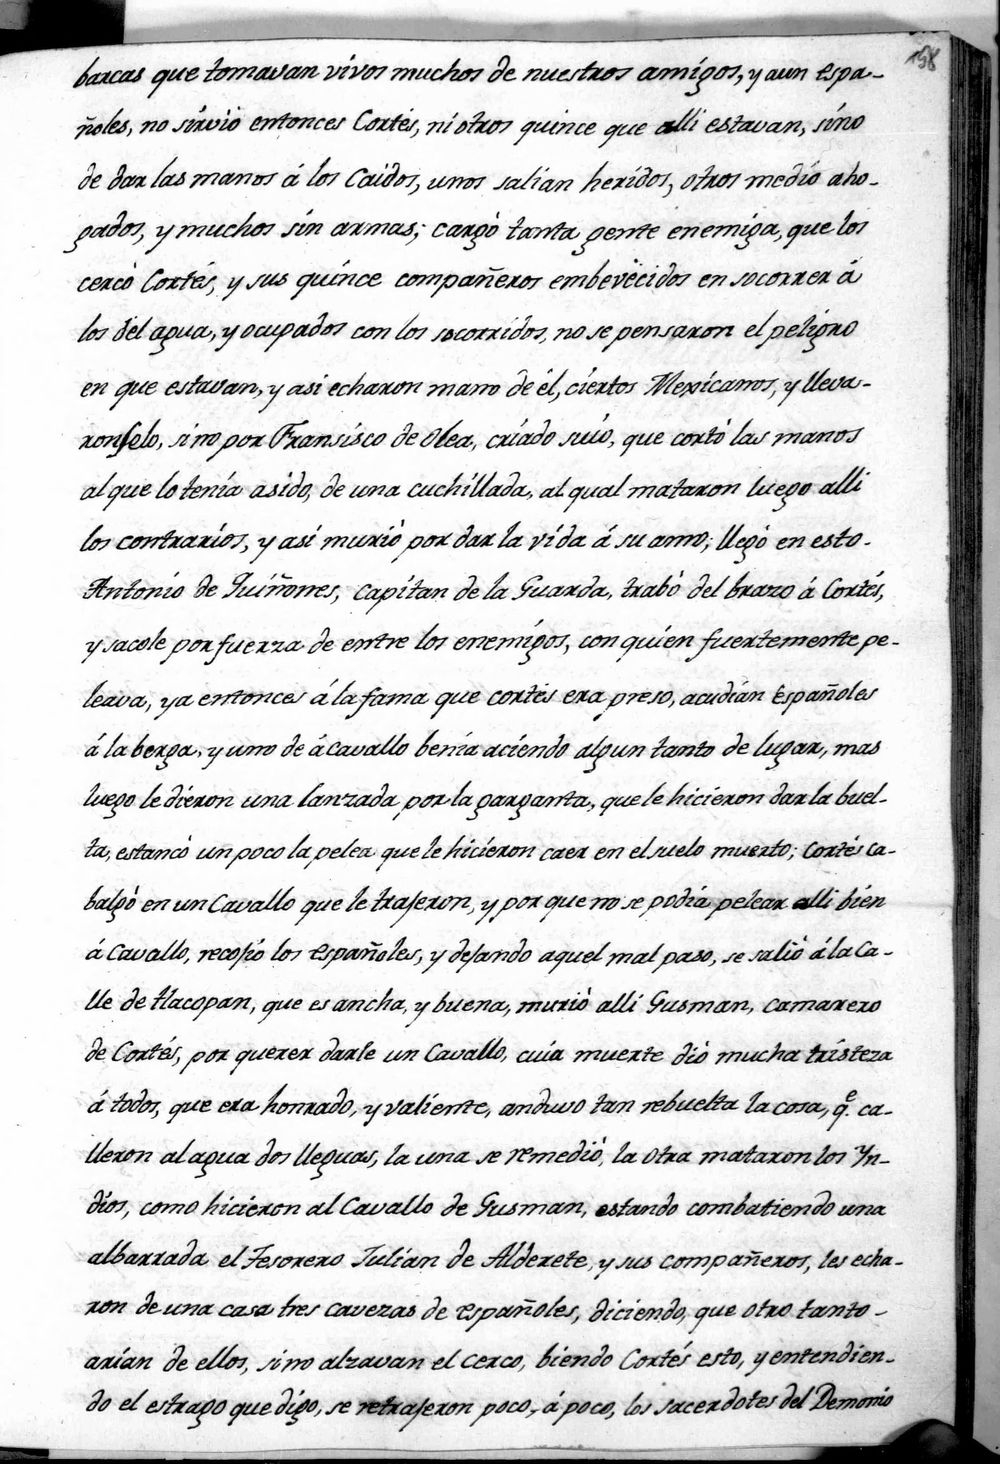 198
barcas que tomavan vivos muchos de nuestros amigos, y aun espa-
ñoles, no sirviò entonces Cortés, ni otros quince que alli estavan, sino
de dar las manos á los Caidos, unos salian heridos, otros medio aho-
gados, y muchos sin armas; cargò tanta gente enemiga, que los
cercò Cortés, y sus quince compañeros embevecidos en socorrer á
los del agua, y ocupados con los socorridos, no se pensaron el peligro
en que estavan, y asi echaron mano de él, ciertos Mexicanos, y lleva-
ronselo, sino por Fransisco de Olea, criado suio, que cortò las manos
al que lo tenia asido, de una cuchillada, al qual mataron luego alli
los contrarios, y asi muriò por dar la vida á su amo; llegò en esto-
Antonio de Quiñones, capitan de la Guarda, trabò del brazo á Cortés,
y sacole por fuerza de entre los enemigos, con quien fuertemente pe-
leava, ya entonces á la fama que cortés era preso, acudian Españoles
á la berga, y uno de ácavallo benia aciendo algun tanto de lugar, mas
luego le dieron una lanzada por la garganta, que le hicieron dar la buel-
ta, estancò un poco la pelea que le hicieron caer en el suelo muerto; cortés ca-
balgò en un Cavallo que le trajeron, y por que no se podia pelear alli bien
á Cavallo, recojió los españoles, y dejando aquel mal paso, se saliò á la Ca-
lle de tlacopan, que es ancha, y buena, muriò alli Gusman, camarero
de Cortés, por querer darle un Cavallo, cuia muerte diò mucha tristeza
á todos, que era honrado, y valiente, anduvo tan rebuelta la cosa, qᵉ. ca-
lleron al agua dos lleguas, la una se remediò, la otra mataron los Yn-
dios, como hicieron al Cavallo de Gusman, estando combatiendo una
albarrada el Tesorero Julian de Alderete, y sus compañeros, les echa-
ron de una casa tres cavezas de españoles, diciendo, que otro tanto-
arian de ellos, sino alzavan el cerco, biendo Cortés esto, y entendien-
do el estrago que digo, se retrajeron poco, á poco, los sacerdotes del Demonio